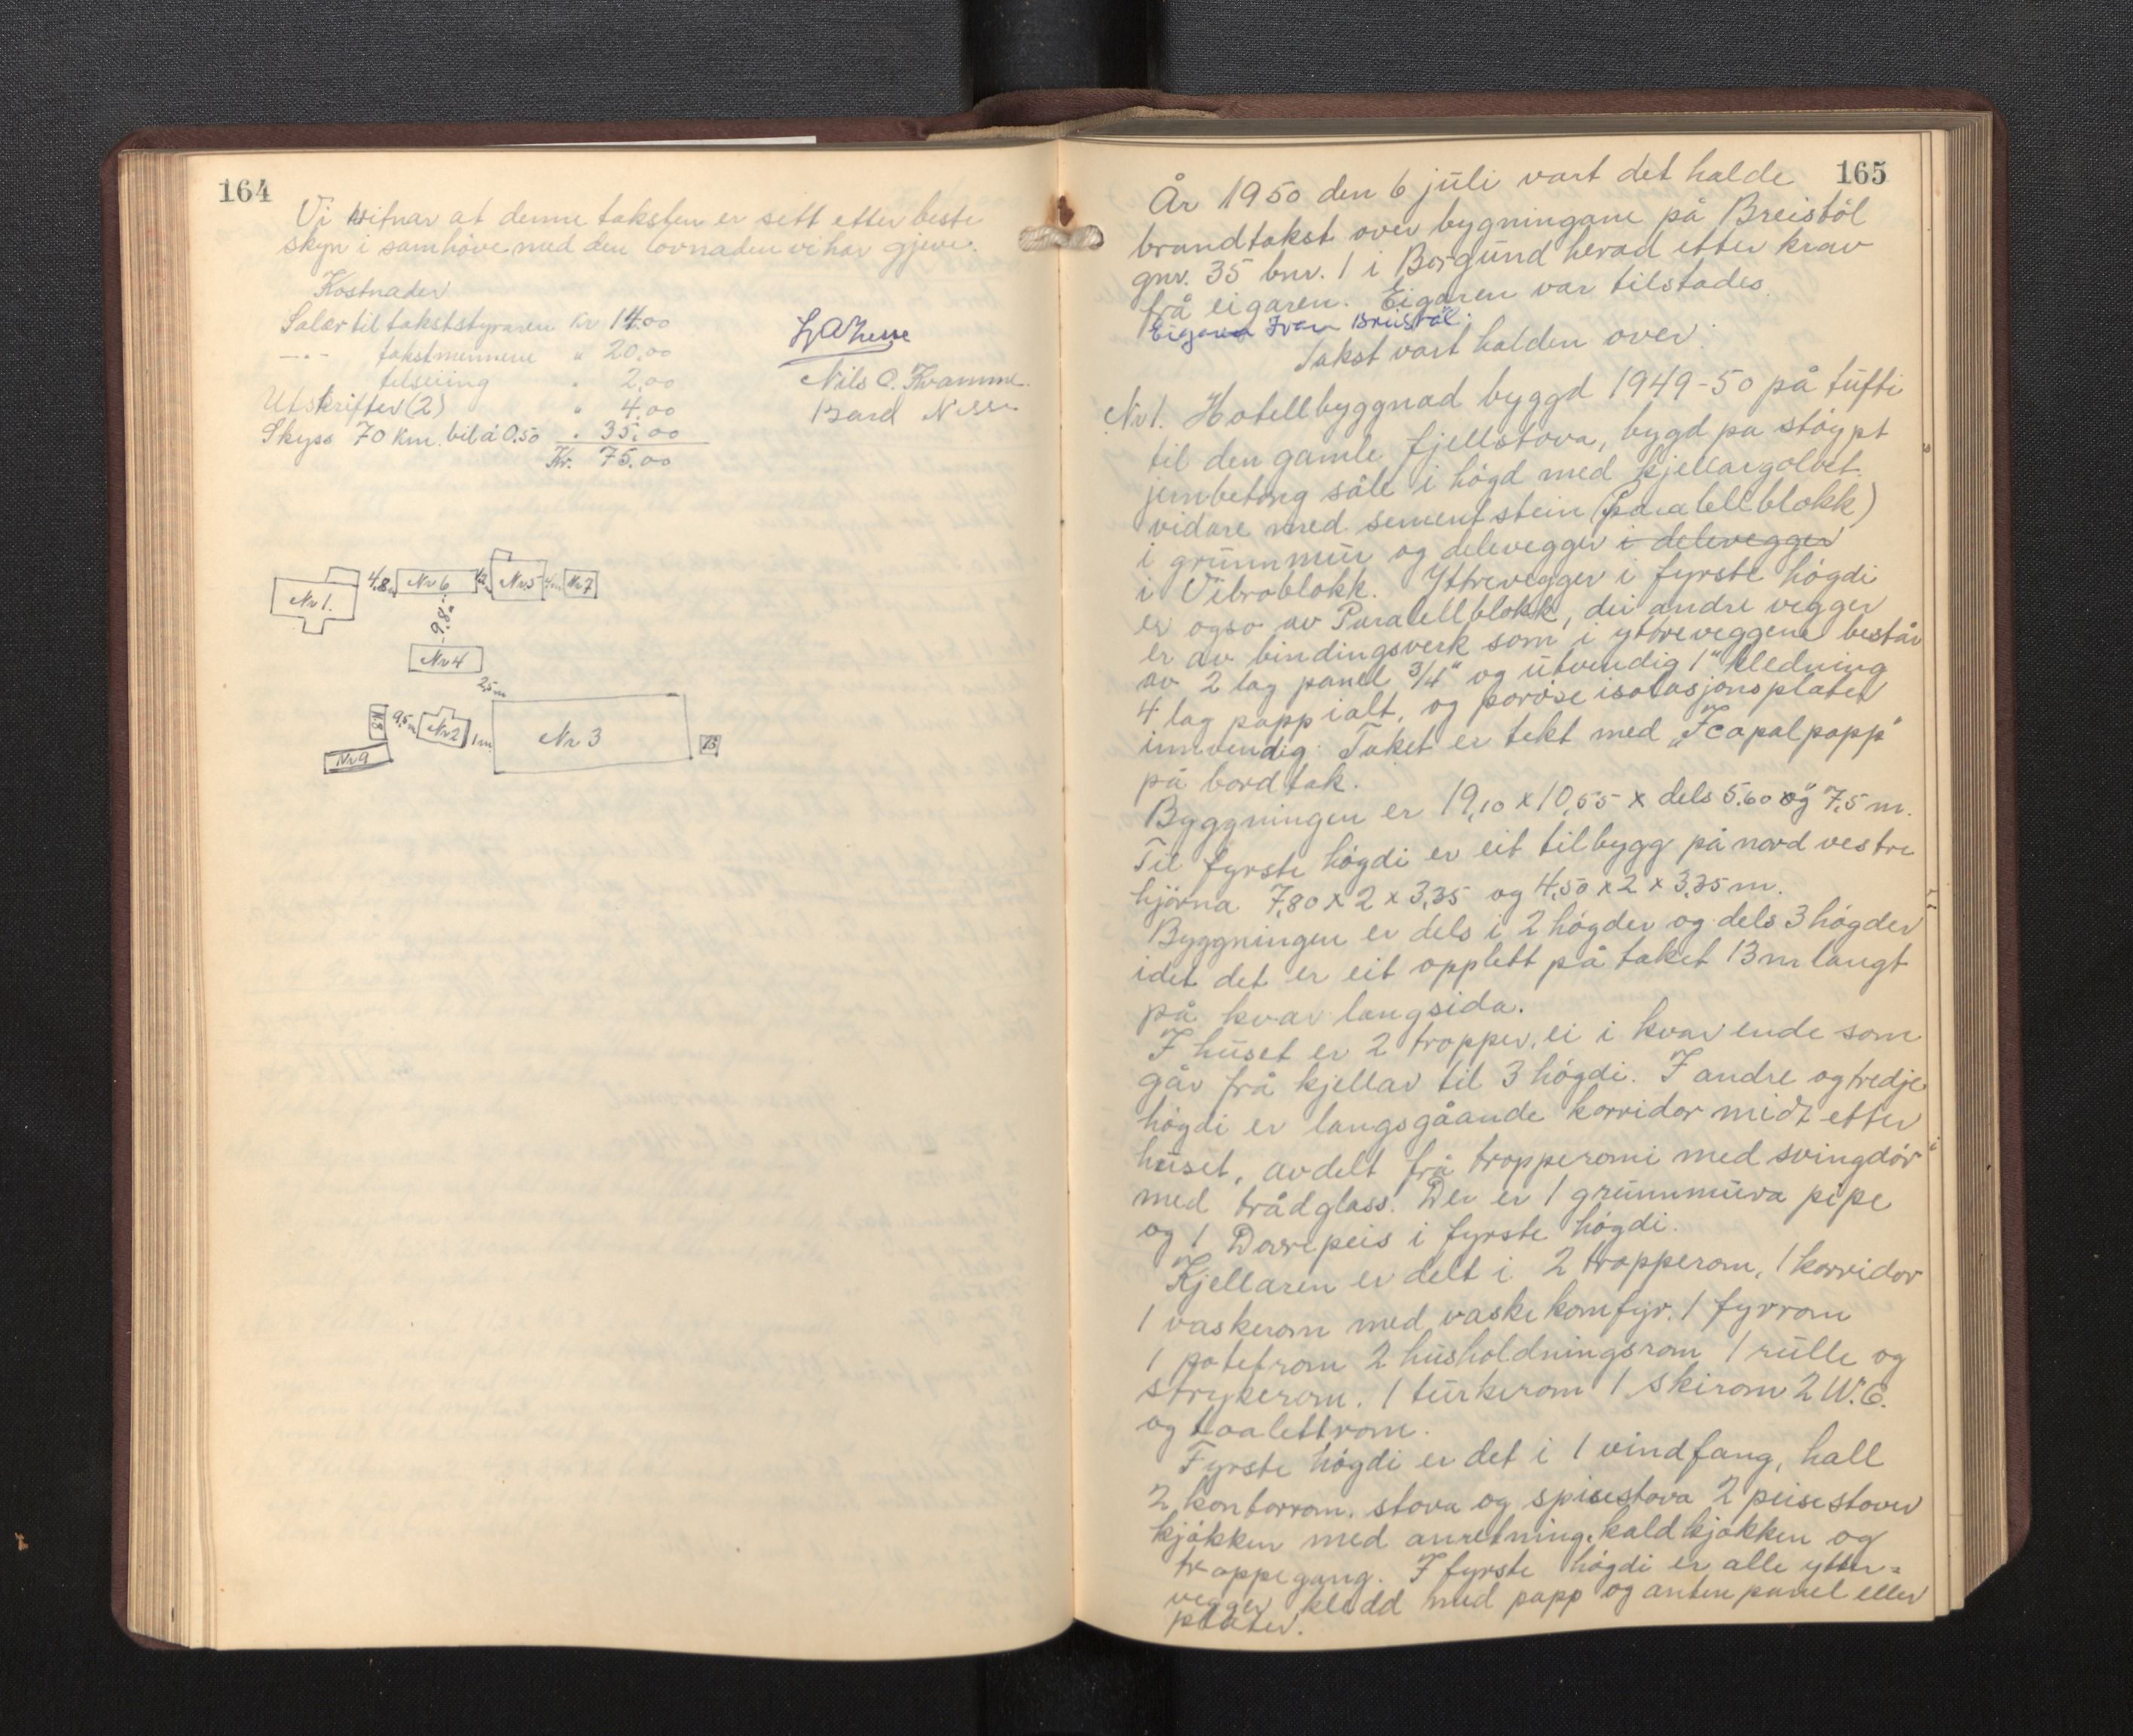 164
Vi vitnar at denne taksten er sett etter beste
skyn i samhöve med den lovnaden vi har gjeve.
Kostnader
Salær til takststyraren Kr 14.00
—"— takstmennene " 20.00
tilseiing " 2.00
Utskrifter (2) " 4.00
Skyss 70 km. bil á 0.50 " 35.00
Kr. 75.00
Nils O. Kvamme
Bård
Nr 1.
4.8m
Nr 6
Nr 5
4m
Nr 7
9.8
Nr 4
2,5m
Nr 8
9,5m
Nr 2
1m
Nr 3
Nr 9
165
År 1950 den 6 juli vart det halde
brandtakst over bygningane på Breistöl
gnr. 35 bnr. 1 i Borgund herad etter krav
frå eigaren. Eigaren var tilstades.
Eigaren Ivar Breistöl.
Takst vart halden over:
Nr 1. Hotellbyggnad byggd 1949-50 på tufti
til den gamle fjellstova, bygd på stöypt
jernbetong såle i högd med kjellargolvet.
vidare med sementstein (Paralellblokk)
i grunnmur og delevegger i delevegger
i Vibroblokk. Yttrevegger i fyrste högdi
er også av Paralellblokk, dei andre vegger
er av bindingsverk som i yttreveggene består
av 2 lag panel 3/4" og utvendig 1" kledning
4 lag papp ialt, og poröse isolasjonsplater
innvendig. Taket er tekt med „Icopalpapp"
på bordtak.
Byggningen er 19,10 x 10,55 x dels 5.60 og 7,5 m.
Til fyrste högdi er eit tilbygg på nordvestre
hjörna 7,80 x 2 x 3,35 og 4,50 x 2 x 3,35 m.
Byggningen er dels i 2 högder og dels 3 högder
idet det er eit opplett på taket 13 m langt
på kvar langsida.
I huset er 2 tropper, ei i kvar ende som
går frå kjellar til 3 högdi. I andre og tredje
högdi er langsgåande korridor midt etter
huset, avdelt frå tropperomi med svingdör
med trådglass. Der er 1 grunnmura pipe
og 1 Dovrepeis i fyrste högdi.
Kjellaren er delt i 2 tropperom, 1 korridor
1 vaskerom med vaskekomfyr. 1 fyrrom
1 potetrom 2 husholdningsrom 1 rulle og
strykerom. 1 turkerom 1 skirom 2 W.C.
og toalettrom.
Fyrste högdi er det i 1 vindfang, hall
2 kontorrom. stova og spisestova 2 peisestover
kjökken med anretning. kaldkjökken og
troppegang. I fyrste högdi er alle ytter-
vegger kledd med papp og anten panel eller
plater.